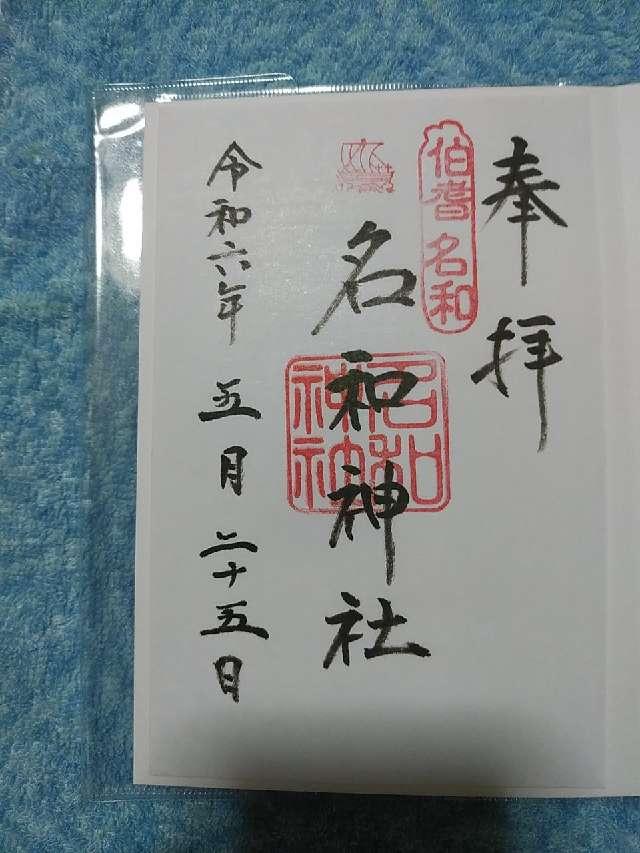 奉拝
伯耆名和
名和神社
名和神社
令和六年五月二十五日